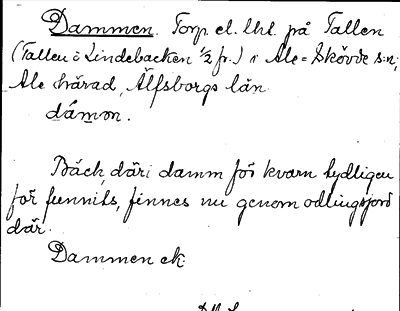 Dammen. Torp el. lht. på Tallen
(Tallen i Lindebacken 1/2 fr.) i Ale-Skövde s:n,
Ale härad, Älfsborgs län
dámon.
Bäck, däri damm för kvarn tydligen
för funnits, finnes nu genom odlingsjord
där.
Dammen ek.